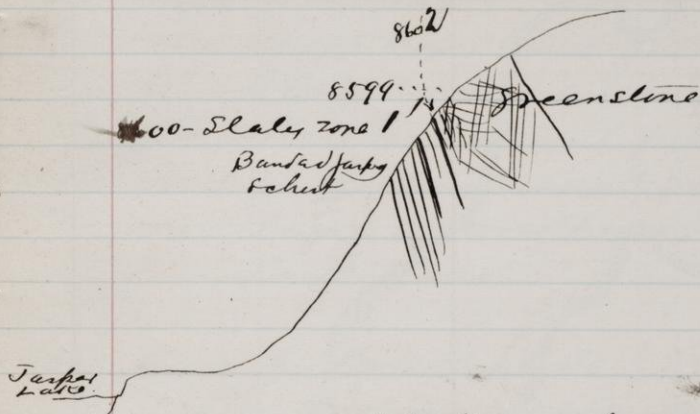 8602
8599
Greenstone
8600 - Slaty zone
Banded jaspery
schist
Jasper
Lake